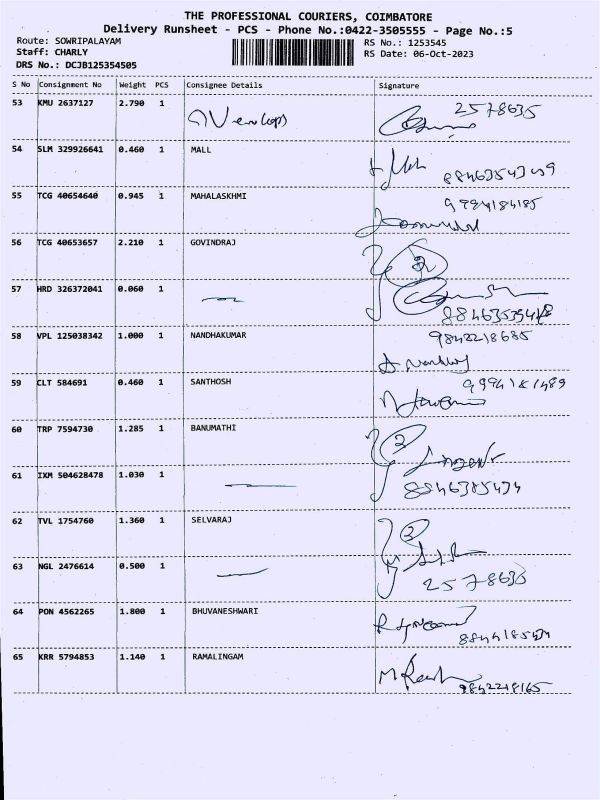 THE PROFESSIONAL COURIERS, COIMBATORE
Delivery Runsheet - PCS - Phone No.:0422-3505555 - Page No.:5
Route: SOWRIPALAYAM RS No.: 1253545
Staff: CHARLY RS Date: 06-Oct-2023
DRS No.: DCJB125354505
S No Consignment No Weight PCS Consignee Details Signature
53 KMU 2637127 2.790 1 2578635
54 SLM 329926641 0.460 1 MALL
55 TCG 40654640 0.945 1 MAHALASKHMI
56 TCG 40653657 2.210 1 GOVINDRAJ 2
57 HRD 326372041 0.060 1
58 VPL 125038342 1.000 1 NANDHAKUMAR 9842218685
59 CLT 584691 0.460 1 SANTHOSH
60 TRP 7594730 1.285 1 BANUMATHI 2
61 IXM 504628478 1.030 1
62 TVL 1754760 1.360 1 SELVARAJ 2
63 NGL 2476614 0.500 1 2578635
64 PON 4562265 1.800 1 BHUVANESHWARI
65 KRR 5794853 1.140 1 RAMALINGAM 9842218165